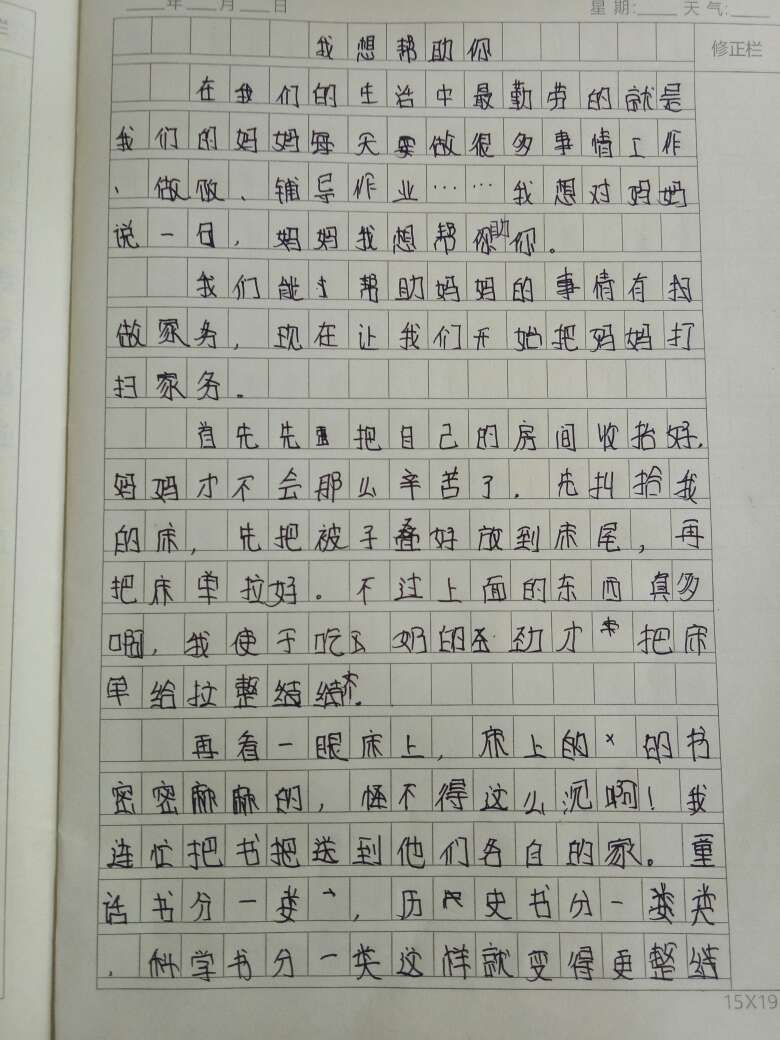 年 月 日 星期: 天气:
修正栏
我想帮助你
在我们的生活中最勤劳的就是
我们的妈妈每天要做很多事情工作
、做饭、辅导作业……我想对妈妈
说一日，妈妈我想帮你助你。
我们能才帮助妈妈的事情有扫
做家务，现在让我们开始把妈妈打
扫家务。
首先先 把自己的房间收拾好，
妈妈才不会那么辛苦了．先抖拾我
的床，先把被子叠好放到床尾，再
把床单拉好。不过上面的东西真多
啊，我使于吃 奶的 劲才 把床
单给拉整结结
再看一眼床上，床上的 的书
密密麻麻的，怪不得这么沉啊！我
连忙把书把送到他们各自的家。童
话书分一类，历 史书分一类类
．科学书分一类这样就变得更整结
15X19